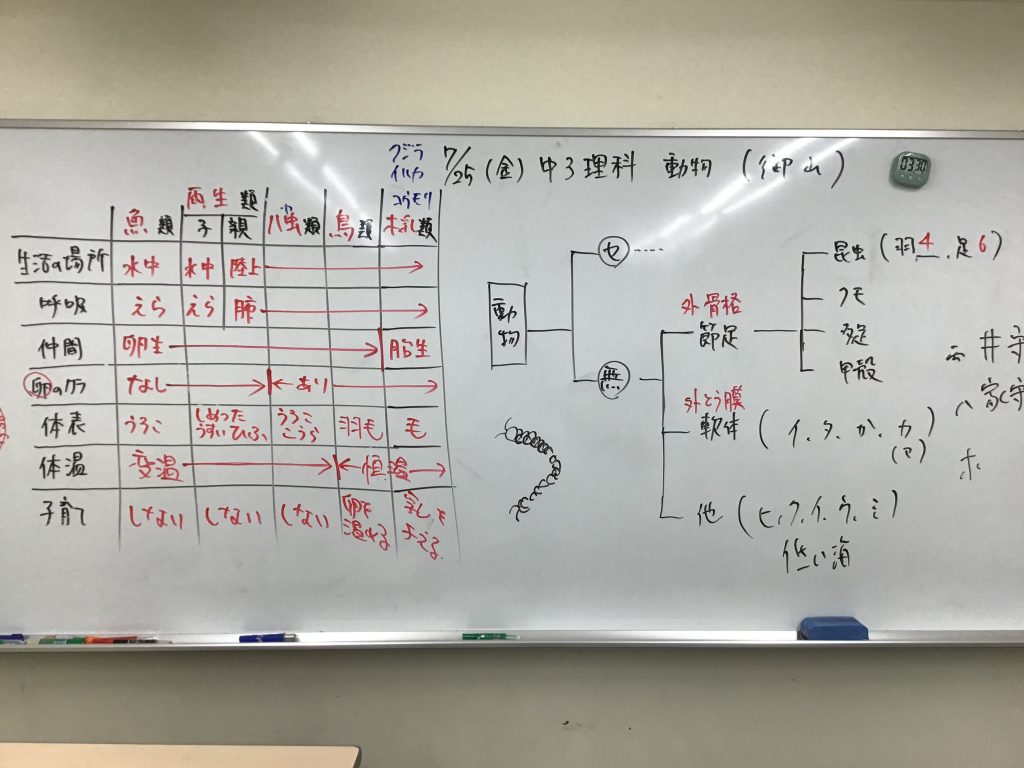 クジラ
イルカ
コウモリ
7/25 (金) 中3理科 動物 (御山)
03:30
魚類 両生類 ハ虫類 鳥類 ホ乳類
子 親
生活の場所 水中 水中 陸上
呼吸 えら えら 肺
仲間 卵生 胎生
卵のカラ なし あり
体表 うろこ しめったうすいひふ うろここうら 羽毛 毛
体温 変温 恒温
子育て しない しない しない 卵を温める 乳を与える
動物
セ ‥‥
無
外骨格
節足
昆虫 (羽4、足6)
クモ
多足
甲殻
外とう膜
軟体 (イ、タ、か、カ)
(マ)
他 (ヒ、ク、イ、ウ、ミ)
低い海
両 井守
ハ 家守